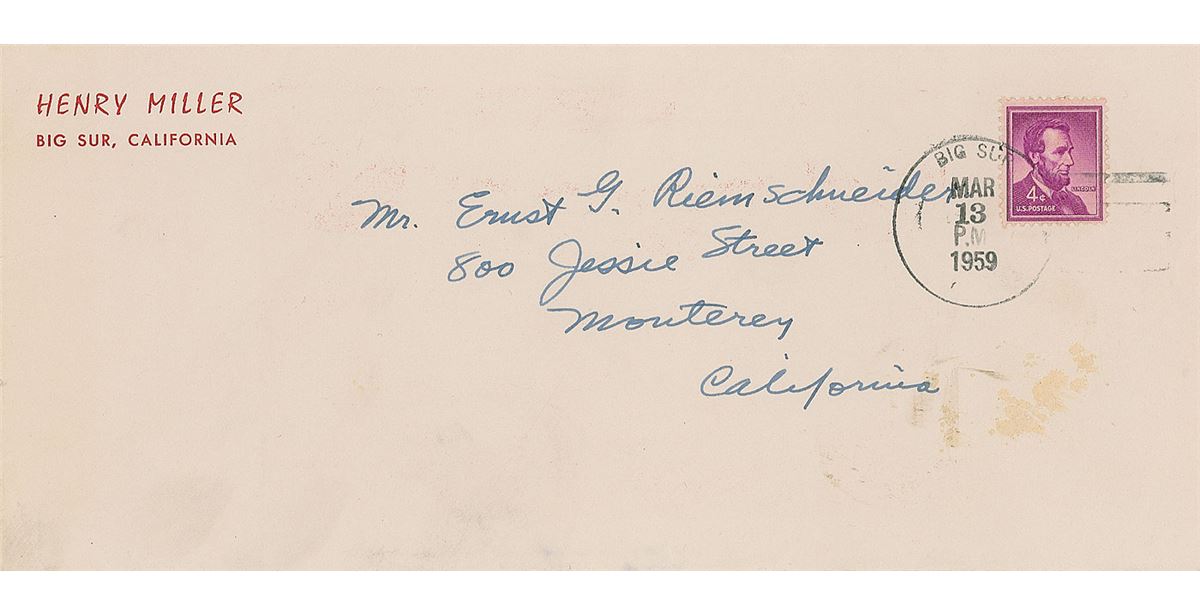 HENRY MILLER
BIG SUR, CALIFORNIA
Mr. Ernst G. Riemschneider
800 Jessie Street
Monterey
California
BIG SUR
MAR
13
P.M
1959
LINCOLN
4¢
U.S. POSTAGE